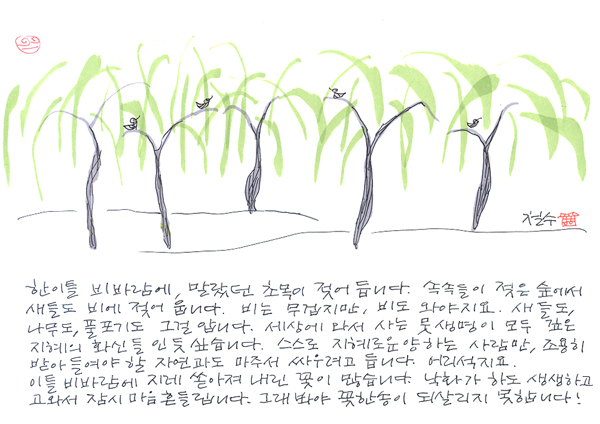 철수
한이틀 비바람에, 말랐던 초목이 젖어 듭니다. 속속들이 젖은 숲에서
새들도 비에 젖어 웁니다. 비는 무겁지만, 비도 와야지요. 새들도,
나무도, 풀포기도 그걸 압니다. 세상에 와서 사는 뭇생명이 모두 깊은
지혜의 화신들인 듯 싶습니다. 스스로 지혜로운 양 하는 사람만, 조용히
받아들여야 할 자연과도 마주서 싸우려고 듭니다. 어리석지요.
이틀 비바람에 지레 쏟아져 내린 꽃이 많습니다. 낙화가 하도 생생하고
고와서 잠시 마음 흔들립니다. 그래 봐야 꽃한송이 되살리지 못합니다!